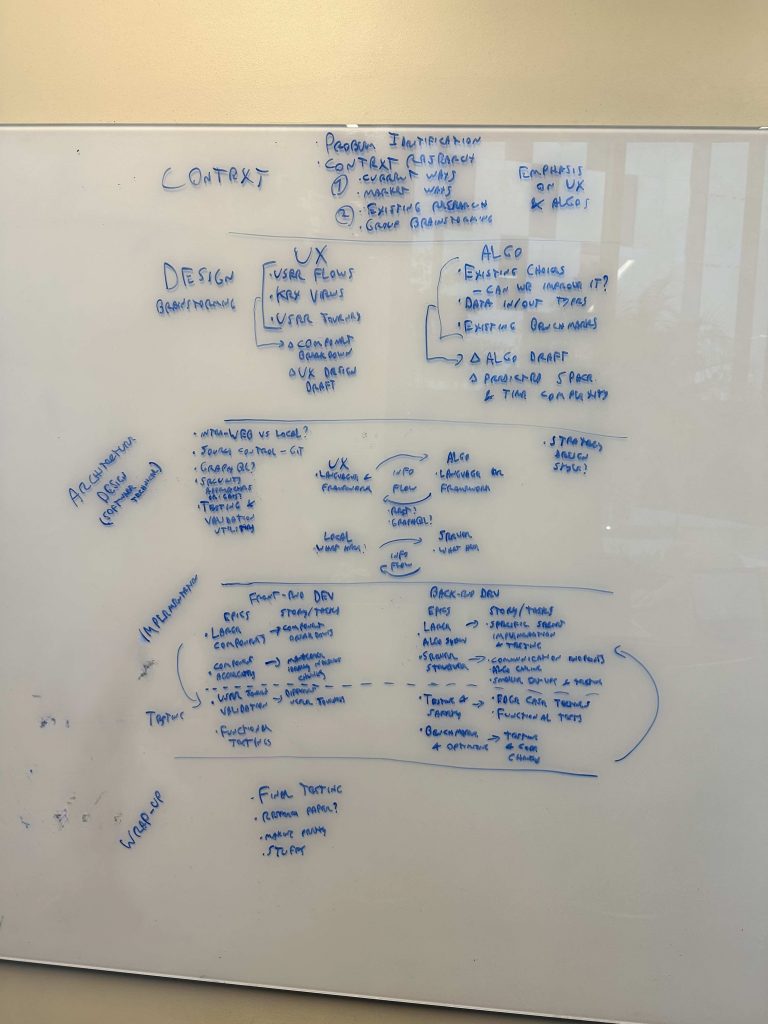 CONTEXT
· PROBLEM IDENTIFICATION
· CONTEXT RESEARCH
① · CURRENT WAYS
· MARKET WAYS
② · EXISTING RESEARCH
· GROUP BRAINSTORMING
EMPHASIS
ON UX
& ALGOS
DESIGN
BRAINSTORMING
UX
· USER FLOWS
· KEY VIEWS
· USER JOURNEY
△ COMPONENT
BREAKDOWN
△ UX DESIGN
DRAFT
ALGO
· EXISTING CHOICES
- CAN WE IMPROVE IT?
· DATA IN/OUT TYPES
· EXISTING BENCHMARKS
△ ALGO DRAFT
△ PREDICTED SPACE
& TIME COMPLEXITY
ARCHITECTURE
DESIGN
(SOFTWARE TECHNICAL)
· INTRA-WEB VS LOCAL?
· SOURCE CONTROL - GIT
· GRAPHQL?
· SECURITY
· TESTING &
VALIDATION
UTILITIES
UX
· LANGUAGE &
FRAMEWORK
INFO
FLOW
ALGO
· LANGUAGE OR
FRAMEWORK
· REST?
· GRAPHQL?
LOCAL
· WHAT HERE?
INFO
FLOW
SERVER
· WHAT HERE
· STRATEGY
DESIGN
STYLE?
IMPLEMENTATION
FRONT-END DEV
EPICS
STORY/TASKS
· LARGER
COMPONENTS
→ COMPONENT
BREAKDOWNS
· COMPONENT
→
BACK-END DEV
EPICS
STORY/TASKS
· LARGER
ALGO
→ · SPECIFIC
IMPLEMENTATION
& TESTING
· SERVER
STRUCTURE
→ · COMMUNICATION ENDPOINTS
· ALGO
· SERVER & TESTING
TESTING
· USER JOURNEY
VALIDATION
→ DIFFERENT
USER JOURNEYS
· FUNCTIONAL
TESTINGS
· TESTING &
SAFETY
→ · EDGE CASE TESTINGS
· FUNCTIONAL TESTS
· BENCHMARKING
& OPTIMIZING
→ TESTING
& CODE
CHANGES
WRAP-UP
· FINAL TESTING
· RESEARCH PAPER?
· STUFF